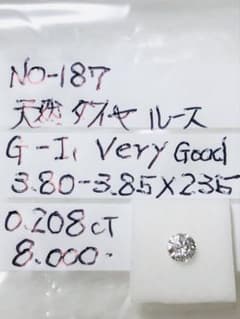 NO-187
天然 ダイヤ ルース
G-I, Very Good
3.80-3.85×2.35
0.208CT
8.000-